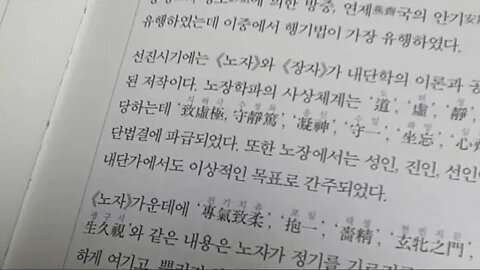 에 의한 방중, 연제燕齊국의 안기安
유행하였는데 이중에서 행기법이 가장 유행하였다.
선진시기에는 《노자》와 《장자》가 내단학의 이론과 공
된 저작이다. 노장학파의 사상체계는 ‘道’, ‘虛’, ‘靜’,
당하는데 ‘致虛極, 守靜篤’, ‘凝神’, ‘守一’, ‘坐忘’, ‘心齊
단법결에 파급되었다. 또한 노장에서는 성인, 진인, 선인
내단가에서도 이상적인 목표로 간주되었다.
《노자》가운데에 ‘專氣致柔’, ‘抱一’, ‘嗇精’, ‘玄牝之門’,
生久視’와 같은 내용은 노자가 정기를
하게 여기고,